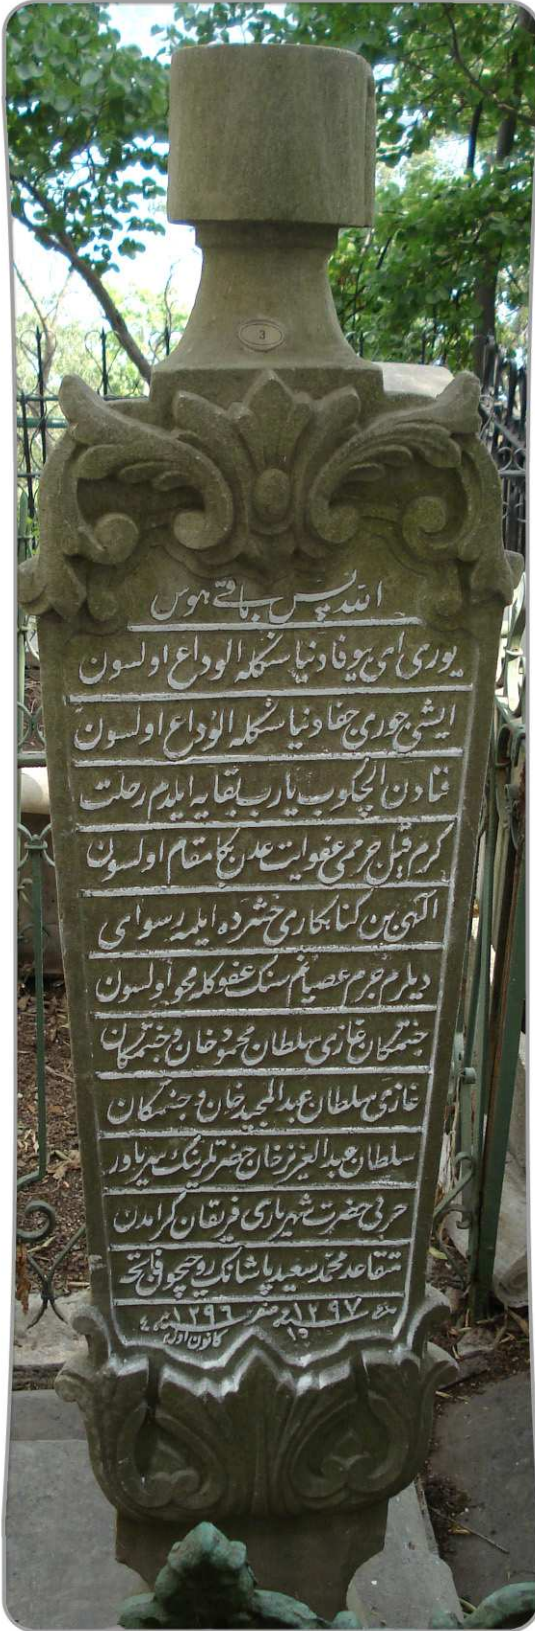 3
الله بس باقى هوس
يورى اى بيوفا دنيا سنكله الوداع اولسون
ايشى جورى جفا دنيا سنكله الوداع اولسون
فنادن ال چكوب يارب بقايه ايلدم رحلت
كرم قيل جرممى عفو ايت عدن بكا مقام اولسون
الهى بن كناهكارى حشرده ايلمه رسواى
ديلرم جرم عصيانم سنك عفوكله محو اولسون
جنتمكان غازى سلطان محمود خان و جنتمكان
غازى سلطان عبد المجيد خان و جنتمكان
سلطان عبد العزيز خان حضرتلرينك سر ياور
حربى حضرت شهريارى فريقان كرامدن
متقاعد محمد سعيد پاشانك روحيچون فاتحه
سنه ١٢٩٧ صفر سنه ١٢٩٦
كانون